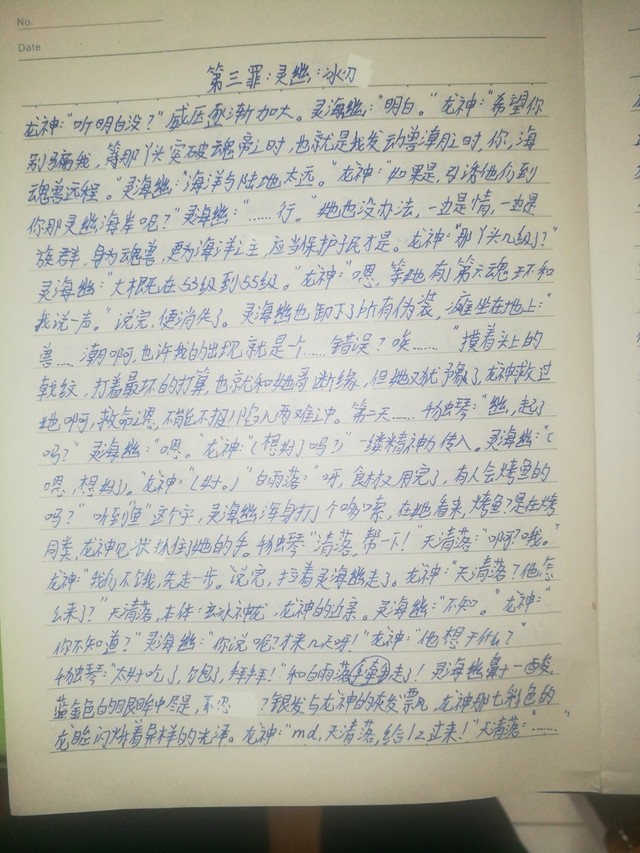 No.
Date
第三罪:灵幽,冰刃
龙神:“听明白没?”威压逐渐加大。灵海幽:“明白。”龙神:“希望你
别骗我,等那丫头突破魂帝之时,也就是我发动兽潮之时,你,海
魂兽远程。”灵海幽:“海洋与陆地太远。”龙神:“如果是,引诱他们到
你那灵幽海岸呢?”灵海幽:“……行。”她也没办法,一边是情,一边是
族群,身为魂兽,更为海洋之主,应当保护子民才是。龙神:“那丫头几级了?”
灵海幽:“大概在53级到55级。”龙神:“嗯,等她有了第六魂环和
我说一声。”说完,便消失了。灵海幽也卸下了所有伪装,瘫坐在地上:“
兽……潮啊,也许我的出现就是个……错误?唉……”摸着头上的
戟纹,打着最坏的打算,也就和她哥断缘,但她又犹予了,龙神救过
她啊,救命之恩,不能不报!陷入两难之中。第二天……独琴:“幽,起了
吗?”灵海幽:“嗯。”龙神:“(想好了吗?)”一缕精神力传入。灵海幽:“(
嗯,想好了。”龙神:“(好。)”白雨落:“呀,食材又用完了,有人会烤鱼的
吗?”听到“鱼”这个字,灵海幽浑身打了个哆嗦,在她看来,烤鱼?是在烤
同类,龙神见状抓住她的手。独琴:“清落,帮一下!”天清落:“啊?哦。”
龙神:“我们不饿,先走一步。”说完,扫着灵海幽走了。龙神:“天清落?他怎
么来了?”天清落,本体:玄冰神龙,龙神的近亲。灵海幽:“不知。”龙神:“
你不知道?”灵海幽:“你说呢?才来几天呀!”龙神:“他想干什么?”
独琴:“太好吃了,饱了,拜拜!”和白雨落手牵手走了!灵海幽鼻子一酸,
蓝金色的眼眸中尽是,不忍 ?银发与龙神的灰发飘,龙神那七彩色的
龙眸闪烁着异样的光泽。龙神:“md,天清落,给l2过来!”天清落:“……”